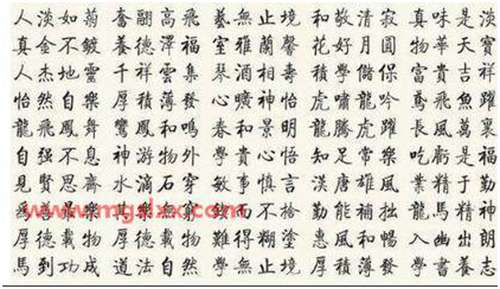 人淡如菊 奮翮高飛 藝無止境 和敬清寂 真味是淡
真金不鍍 養德澤福 室雅蘭馨 花好月圓 物華天寶
人杰地靈 千祥雲集 琴酒相壽 積學儲保 富貴吉祥
怡然自樂 厚積薄發 心曠神怡 虎嘯龍吟 鳶飛魚躍
龍飛鳳舞 鸞鳳和鳴 春和景明 龍騰虎躍 長風萬裏
自强不息 神游物外 學貴心悟 知足常樂 吃虧是福
見賢思齊 水滴石穿 敏事慎言 漢唐雄風 業精于勤
而不捨 勤能補拙 龍馬精神
厚德載物 難得糊塗 惠風和暢 入幽出朗
馬到功成 道法自然 學無止境 厚積薄發 學書養志
www.mgslxx.com